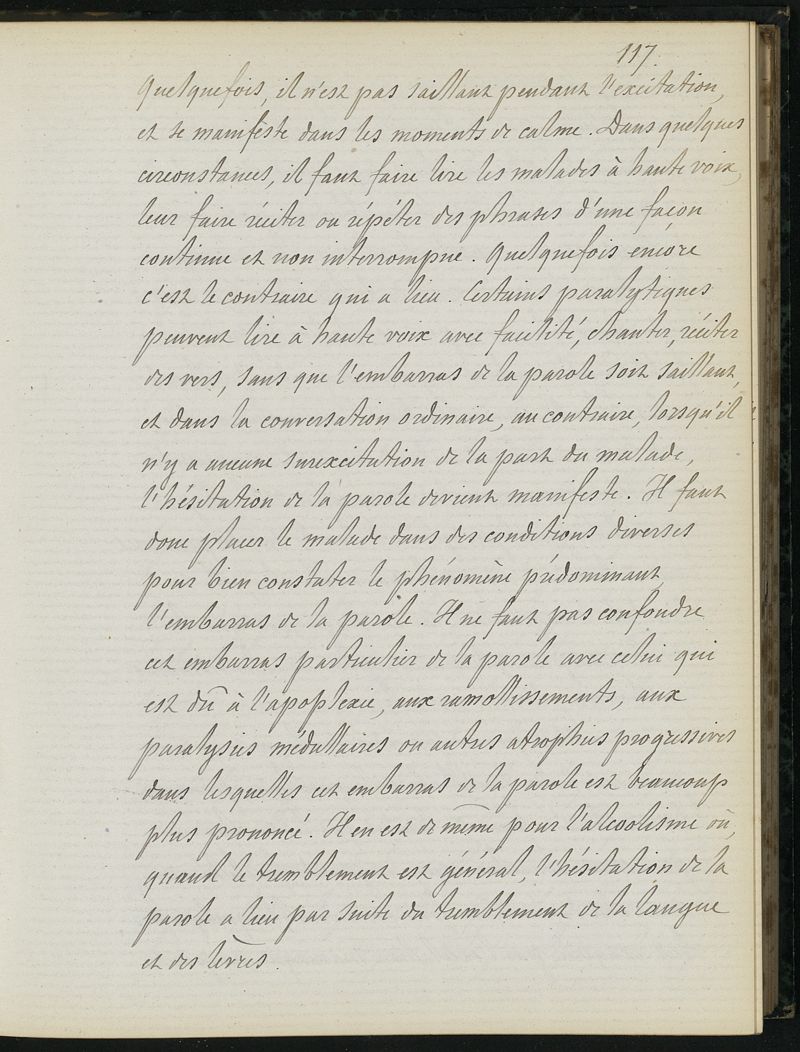 117.
Quelquefois, il n'est pas saillant pendant l'excitation,
et se manifeste dans les moments de calme. Dans quelques
circonstances, il faut faire lire les malades à haute voix,
leur faire réciter ou répéter des phrases d'une façon
continue et non interrompue. Quelquefois encore
c'est le contraire qui a lieu. Certains paralytiques
peuvent lire à haute voix avec facilité, chanter, réciter
des vers, sans que l'embarras de la parole soit saillant,
et dans la conversation ordinaire, au contraire, lorsqu'il
n'y a aucune surexcitation de la part du malade,
l'hésitation de la parole devient manifeste. Il faut
donc placer le malade dans des conditions diverses
pour bien constater le phénomène prédominant,
l'embarras de la parole. Il ne faut pas confondre
cet embarras particulier de la parole avec celui qui
est dû à l'apoplexie, aux ramollissements, aux
paralysies médullaires ou autres atrophies progressives
dans lesquelles cet embarras de la parole est beaucoup
plus prononcé. Il en est de même pour l'alcoolisme où,
quand le tremblement est général, l'hésitation de la
parole a lieu par suite du tremblement de la langue
et des lèvres.